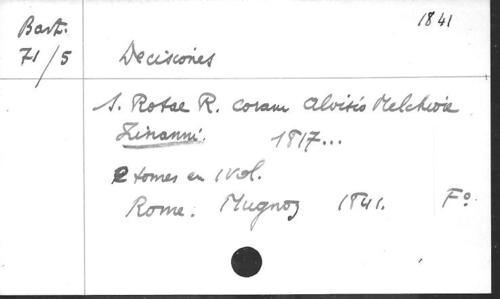 1841
Bart.
71/5
Decisiones
S. Rotae R. coram Aloisio Melchioir
Zinanni. 1817...
2 tomes en 1 vol.
Rome. Mugnoz 1841. Fo.